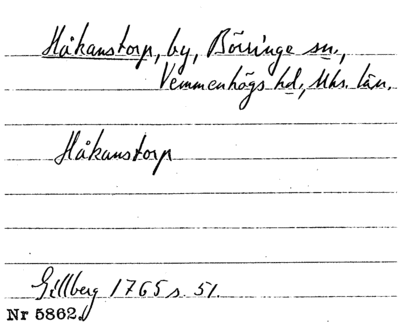 Håkanstorp, by, Börringe sn.,
Vemmenhögs hd., Mhs. län.
Håkanstorp
Gillberg 1765 s. 51.
Nr 5862.